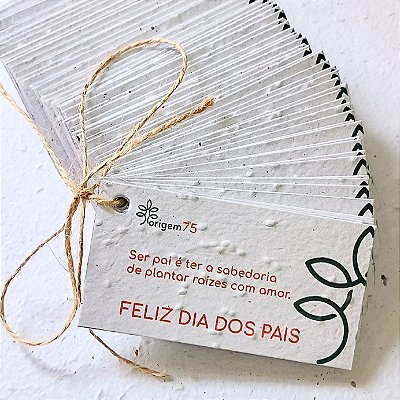 origem75
Ser pai é ter a sabedoria
de plantar raízes com amor.
FELIZ DIA DOS PAIS